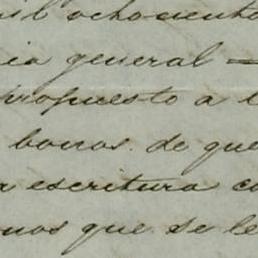 il ochociento
ia general —
propuesto a l
bonos de que
a escritura co
nos que se le